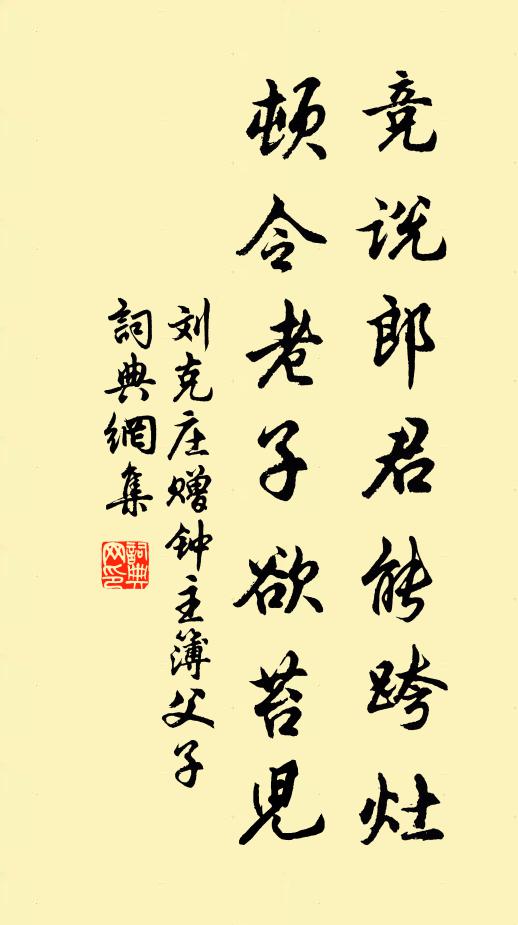 竞说郎君能跨灶
顿令老子欲苔兒
刘克庄赠钟主簿父子
詞典網集
詞典
网印